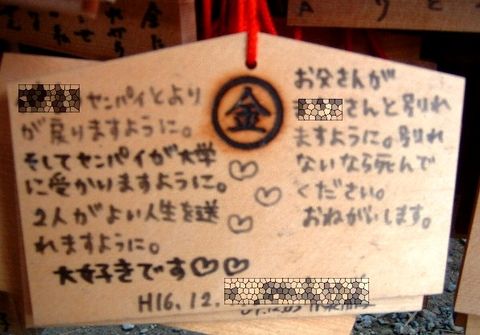 センパイとより
が戻りますように。
そしてセンパイが大学
に受かりますように。
2人がよい人生を送
れますように。
大好きです♡♡
H16.12.
金
お父さんが
さんと別れ
ますように。別れ
ないなら死んで
ください。
おねがいします。